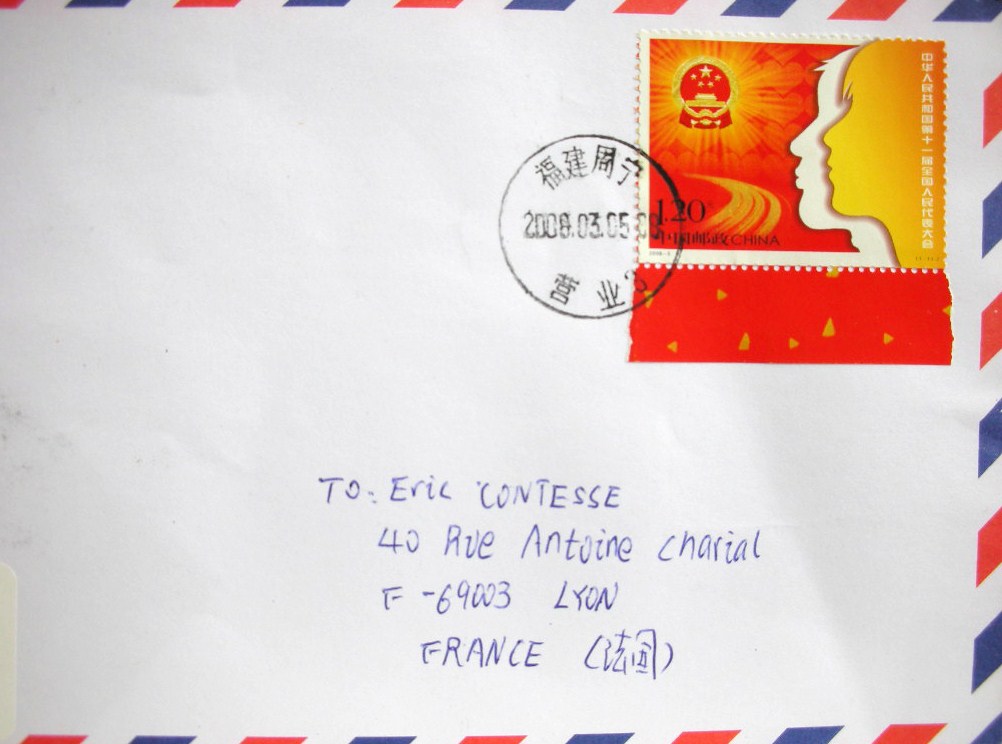 中华人民共和国第十一届全国人民代表大会
福建周宁
2008.03.05
1.20
中国邮政CHINA
营业
TO: Eric CONTESSE
40 Rue Antoine charial
F-69003 LYON
FRANCE (法国)